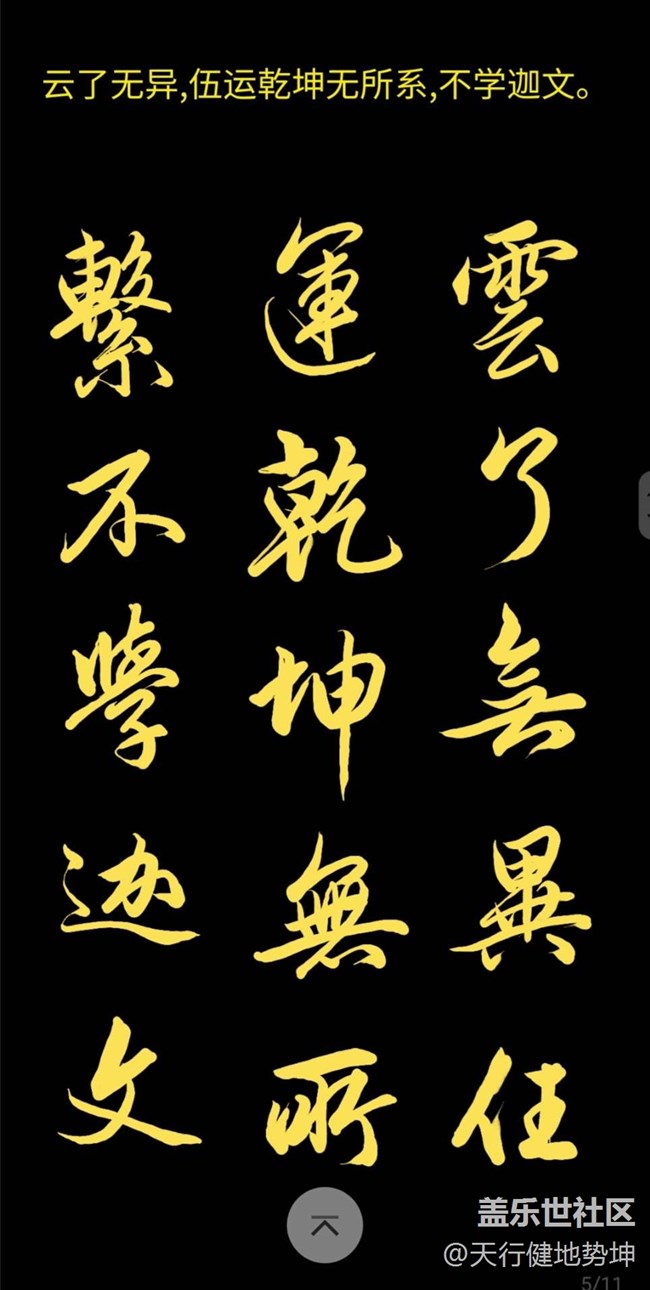 云了无异,伍运乾坤无所系,不学迦文。
雲了無異任
運乾坤無所
繫不學迦文
盖乐世社区
@天行健地势坤
5/11